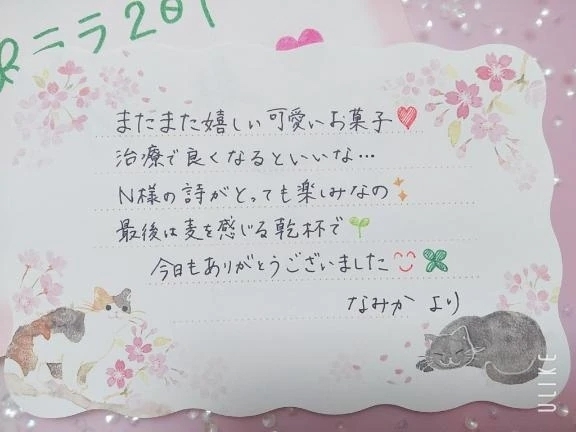 ニラ201
またまた嬉しい可愛いお菓子
治療で良くなるといいな…
N様の詩がとっても楽しみなの
最後は麦を感じる乾杯で
今日もありがとうございました
なみか より
ULIKE